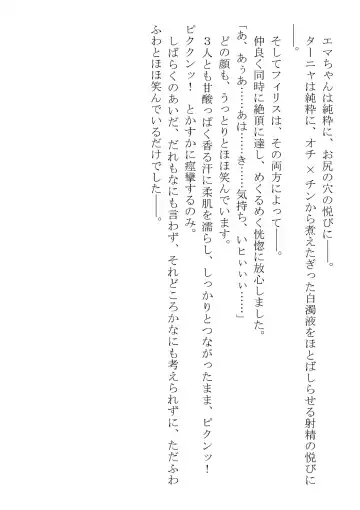 エマちゃんは純粋に、お尻の穴の悦びに――。
ターニャは純粋に、オチ×チンから煮えたぎった白濁液をほとばしらせる射精の悦びに
――。
そしてフィリスは、その両方によって――。
仲良く同時に絶頂に達し、めくるめく恍惚に放心しました。
「あ、あぅぅ……あは……き……気持ち、いヒぃぃぃ……」
どの顔も、うっとりとほほ笑んでいます。
３人とも甘酸っぱく香る汗に柔肌を濡らし、しっかりとつながったまま、ピクンッ！
ピククンッ！　とかすかに痙攣するのみ。
しばらくのあいだ、だれもなにも言わず、それどころかなにも考えられずに、ただふわ
ふわとほほ笑んでいるだけでした――。